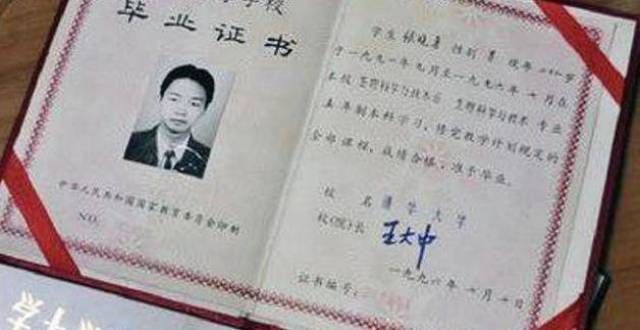 学校
毕业证书
中华人民共和国国家教育委员会印制
NO.
学生 张晓勇 性别 男 现年 二十二岁
于一九九一年九月至一九九六年 七月在
本校 生物科学与技术系 生物科学与技术 专业
五年制本科学习，修完教学计划规定的
全部课程，成绩合格，准予毕业。
校 名 清华大学
校(院)长 王大中
一九九六年 七月 日
证书编号: